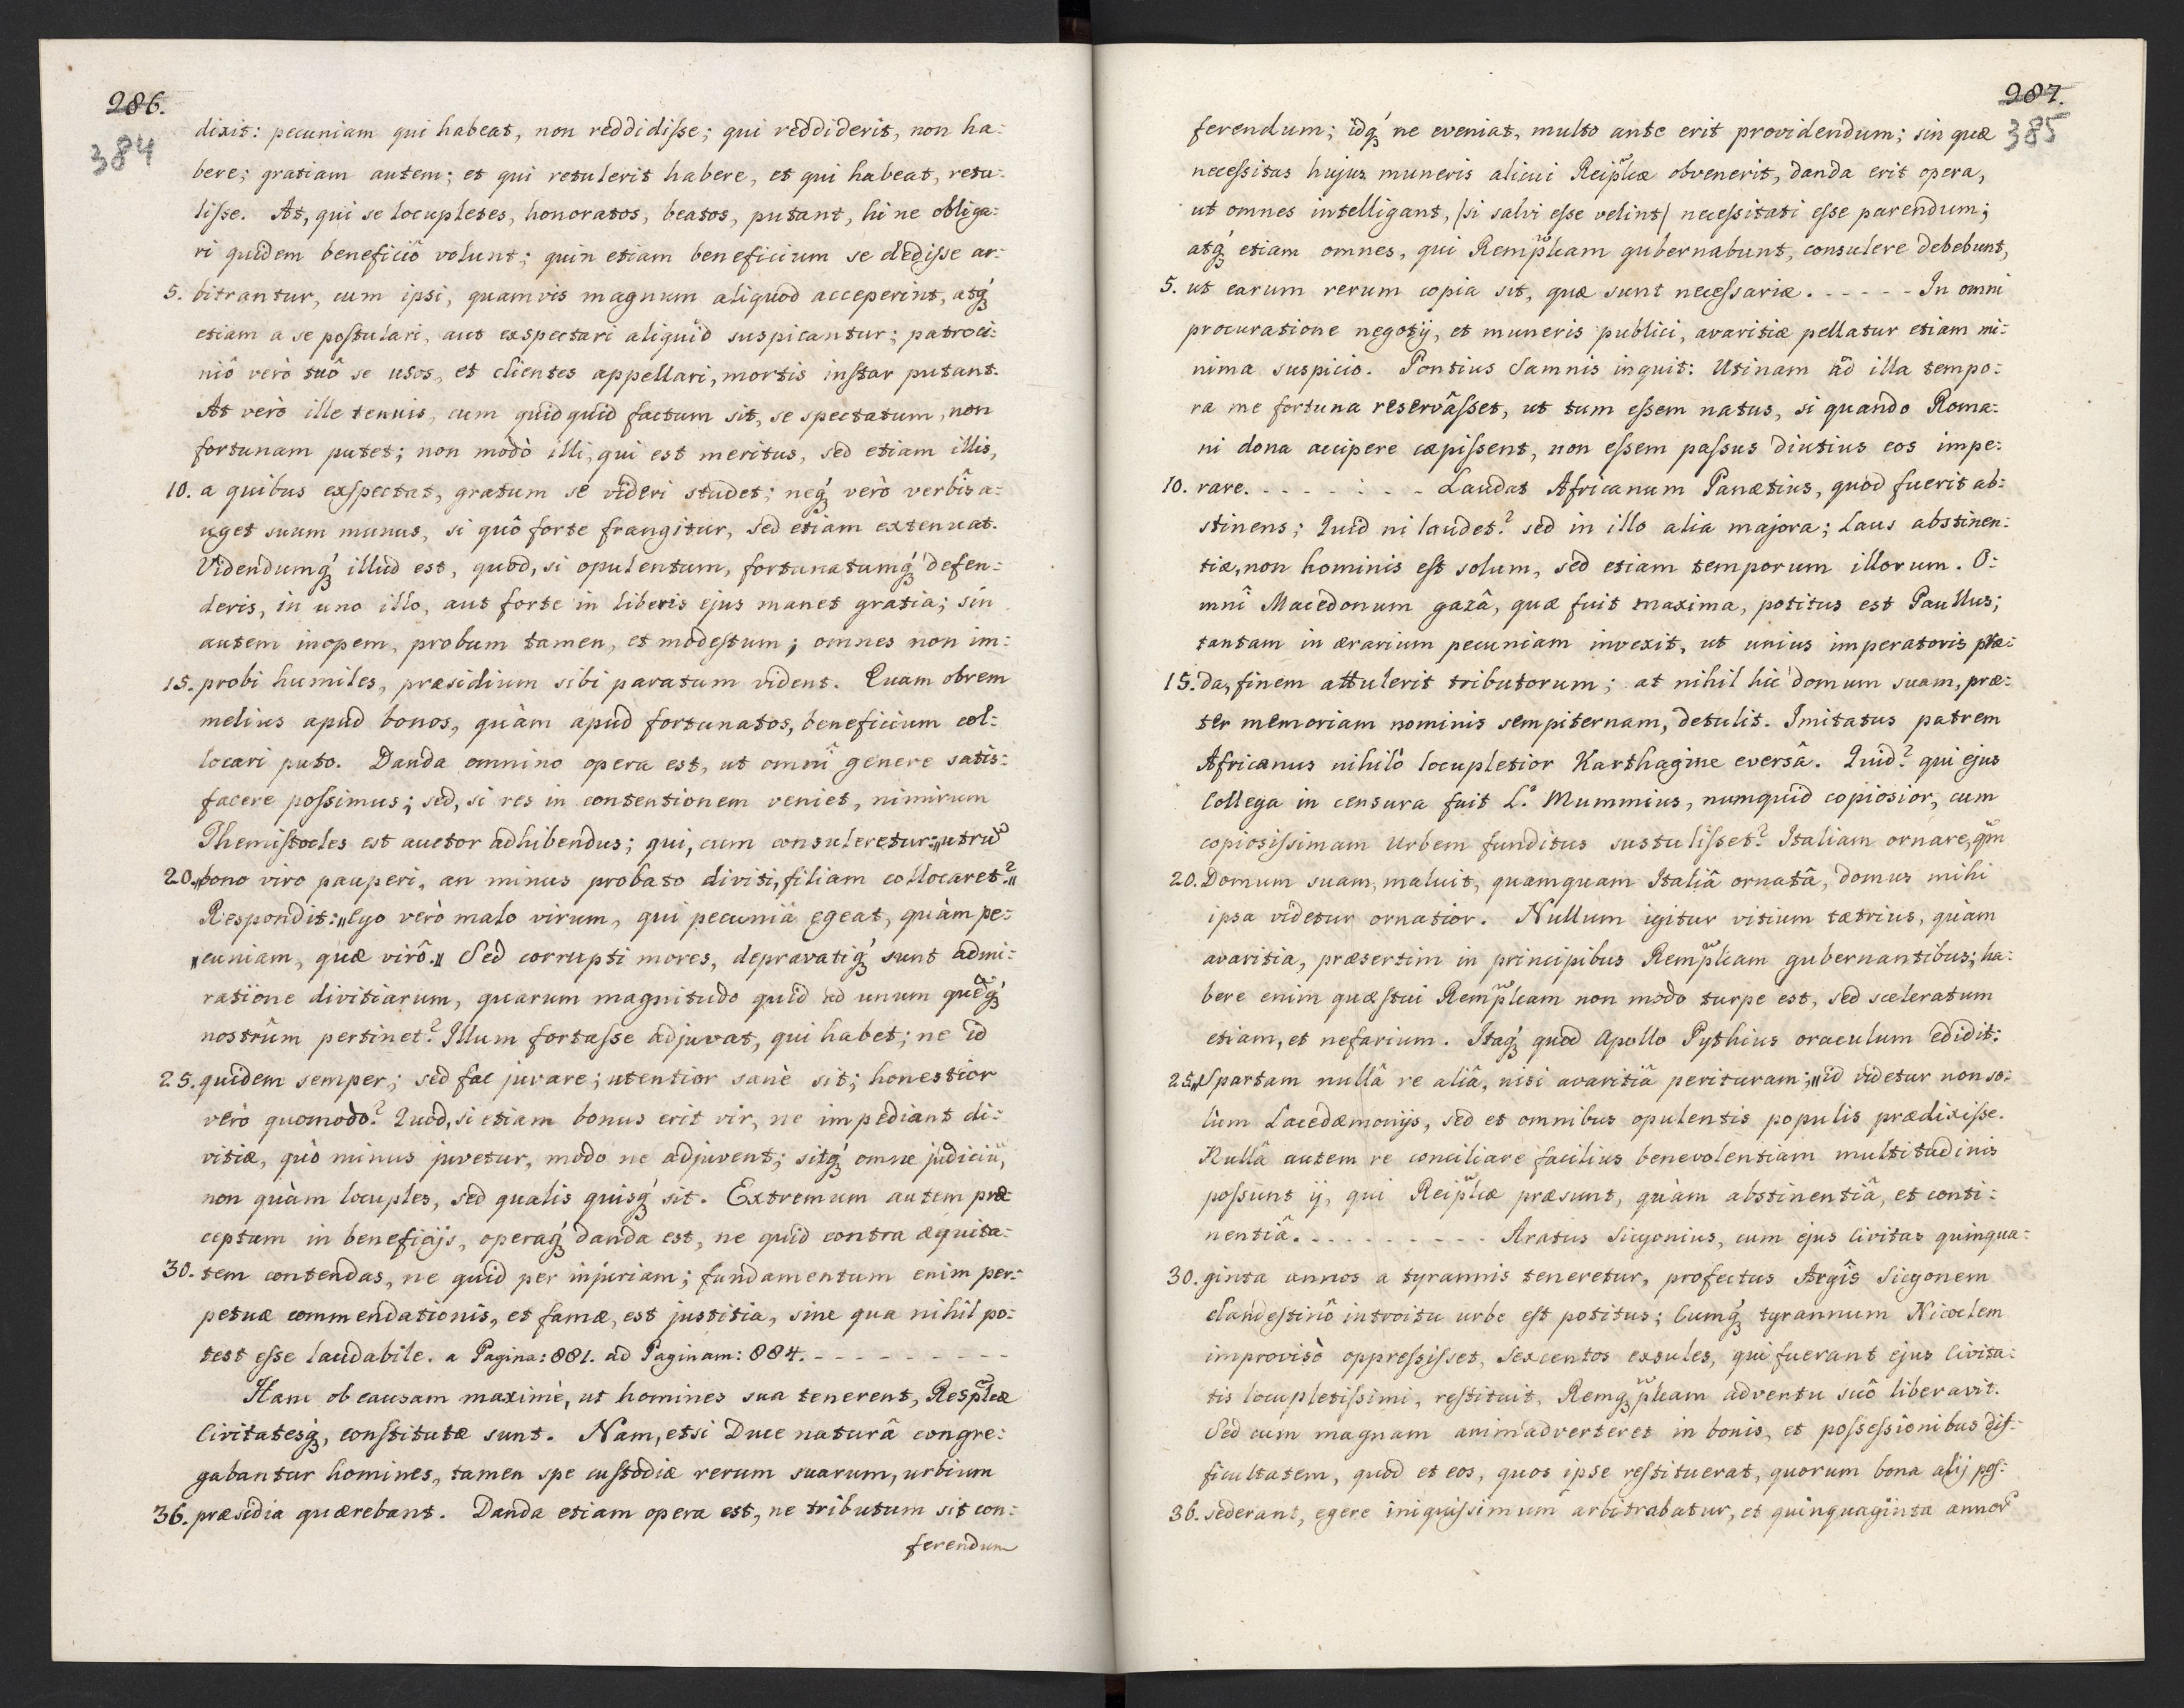 286.
384
dixit: pecuniam qui habeat, non reddidiſse; qui reddiderit, non ha:
bere; gratiam autem; et qui retulerit habere, et qui habeat, retu:
liſse. At, qui se locupletes, honoratos, beatos, putant, hi ne obliga:
ri quidem beneficiô volunt; quin etiam beneficium se dediſse ar:
5. bitrantur, cum ipsi, quamvis magnum aliquod acceperint, atq́
etiam a se poſtulari, aut exspectari aliquid suspicantur; patroci:
niô verò tuô se usos, et clientes appellari, mortis inſtar putant.
At verò ille tenuis, cum quidquid factum sit, se spectatum, non
fortunam putet; non modò illi, qui est meritus, sed etiam illis,
10. a quibus exſpectat, gratum se videri studet; neq́ verò verbis a:
uget suum munus, si quô forte frangitur, sed etiam extenuat.
Videndumq́ illud est, quod, si opulentum, fortunatumq́ defen:
deris, in uno illo, aut forte in liberis ejus manet gratia; sin
autem inopem, probum tamen, et modeſtum; omnes non im:
15. probi humiles, præsidium sibi paratum vident. Quam obrem
melius apud bonos, quàm apud fortunatos, beneficium col:
locari puto. Danda omnino opera est, ut omnî genere satis:
facere poſsimus; sed, si res in contentionem veniet, nimirum
Themiſtocles est auctor adhibendus; qui, cum consuleretur: „utrũ
20. „bono viro pauperi, an minus probato diviti, filiam collocaret?„
Respondit: „Ego verò malo virum, qui pecuniâ egeat, quàm pe:
„cuniam, quæ virô.„ Sed corrupti mores, depravatiq́ sunt admi:
ratione divitiarum, quarum magnitudo quid ad unum quẽq́
nostrûm pertinet? Illum fortaſse adjuvat, qui habet; ne id
25. quidem semper; sed fac juvare; utentior sanè sit; honestior
verò quomodo? Quod, si etiam bonus erit vir, ne impediant di:
vitiæ, quò minus juvetur, modo ne adjuvent; sitq́ omne judiciũ,
non quàm locuples, sed qualis quisq́ sit. Extremum autem præ
ceptum in beneficijs, operaq́ danda est, ne quid contra æquita:
30. tem contendas, ne quid per injuriam; fundamentum enim per:
petuæ commendationis, et famæ, est justitia, sine qua nihil po:
test eſse laudabile. a Pagina: 881. ad Paginam: 884. - - - - - - - - -
Hanc ob causam maximè, ut homines sua tenerent, Respplcæ
Civitatesq́, conſtitutæ sunt. Nam, etsi Duce naturâ congre:
gabantur homines, tamen spe cuſtodiæ rerum suarum, urbium
36. præsidia quærebant. Danda etiam opera est, ne tributum sit con:
ferendum
287.
385
ferendum; idq́ ne eveniat, multo ante erit providendum; sin quæ
neceſsitas hujus muneris alicui Reipplcæ obvenerit, danda erit opera,
ut omnes intelligant, /si salvi eſse velint/ neceſsitati eſse parendum;
atq́ etiam omnes, qui Rempplcam gubernabunt, consulere debebunt,
5. ut earum rerum copia sit, quæ sunt neceſsariæ. - - - - - In omni
procuratione negotij, et muneris publici, avaritiæ pellatur etiam mi:
nima suspicio. Pontius Samnis inquit: Utinam ad illa tempo:
ra me fortuna reservâſset, ut tum eſsem natus, si quando Roma:
ni dona accipere cæpiſsent, non eſsem paſsus diutius eos impe:
10. rare. - - - - - - - - Laudat Africanum Panætius, quod fuerit ab:
stinens; Quid ni laudet? sed in illo alia majora; Laus abstinen:
tiæ, non hominis eſt solum, sed etiam temporum illorum. O:
mnî Macedonum gazâ, quæ fuit maxima, potitus est Paullus;
tantam in ærarium pecuniam invexit, ut unius imperatoris præ:
15. da, finem attulerit tributorum; at nihil hic domum suam, præ:
ter memoriam nominis sempiternam, detulit. Imitatus patrem
Africanus nihilò locupletior Karthagine eversâ. Quid? qui ejus
Collega in censura fuit L.ˢ Mummius, numquid copiosior, cum
copiosiſsimam Urbem funditus sustuliſset? Italiam ornare, qm̃
20. Domum suam, maluit, quamquam Italiâ ornatâ, domus mihi
ipsa videtur ornatior. Nullum igitur vitium tætrius, quàm
avaritia, præsertim in principibus Rempplcam gubernantibus; ha:
bere enim quæſtui Rempplcam non modo turpe est, sed sceleratum
etiam, et nefarium. Itaq́ quod Apollo Pythius oraculum edidit:
25. „Spartam nullâ re aliâ, nisi avaritiâ perituram; „id videtur non so:
lùm Lacedæmonijs, sed et omnibus opulentis populis prædixiſse.
Nullâ autem re conciliare facilius benevolentiam multitudinis
poſsunt ij, qui Reipplcæ præsunt, quàm abstinentiâ, et conti:
nentiâ. - - - - - - - - - - Aratus Sicyonius, cum ejus Civitas quinqua:
30. ginta annos a tyrannis teneretur, profectus Argîs Sicyonem
clandeſtinô introitu urbe eſt potitus; Cumq́ tyrannum Nicoclem
improvisò oppreſsiſset, Sexcentos exsules, qui fuerant ejus Civita:
tis locupletiſsimi, reſtituit, Remq́ pplcam adventu suô liberavit.
Sed cum magnam animadverteret in bonis, et poſseſsionibus dif:
ficultatem, quòd et eos, quos ipse reſtituerat, quorum bona alij poſ:
36. sederant, egere iniquiſsimum arbitrabatur, et quinquaginta annoꝝ